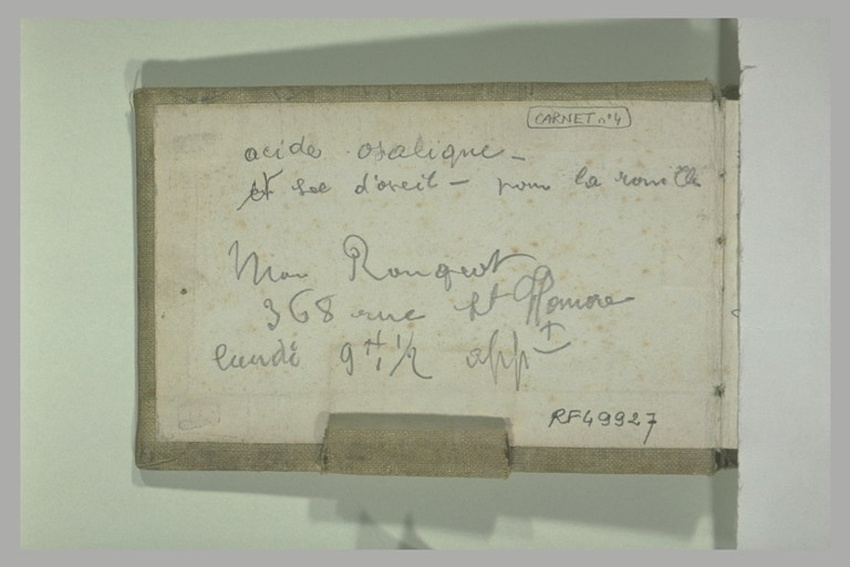 CARNET n°4
acide oxalique –
et sel d'oseil – pour la rouille
Mon Rouquot
368 rue St Honore
lundi 9H 1/2 appt
RF49927